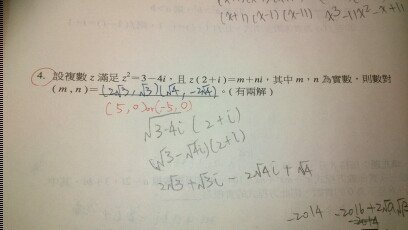 (x+1)(x-1)(x-11) x³-11x²-x+11
4. 設複數 z 滿足 z²=3-4i，且 z(2+i)=m+ni，其中 m，n 為實數，則數對
(m，n)=(2√3，√3)(√4，-2√4)。(有兩解)
(5,0)or(-5,0)
√3-4i (2+i)
(√3-√4i)(2+i)
2√3+√3i-2√4i+√4
-2014 -2016+2√3